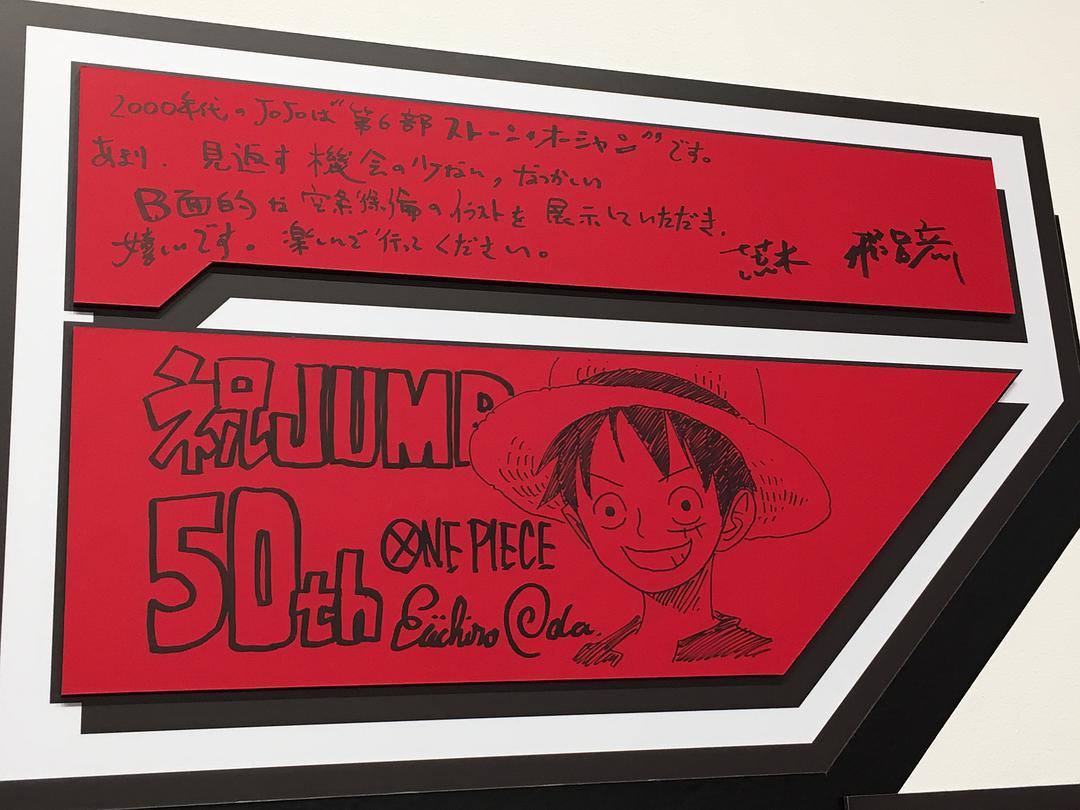 2000年代のJoJoは"第6部 ストーン・オーシャン"です。
あまり、見返す機会の少ない、なつかしい
B面的な空条徐倫のイラストを展示していただき、
嬉しいです。楽しんで行ってください。
荒木 飛呂彦
祝JUMP
50th
ONE PIECE
Eiichiro Oda.